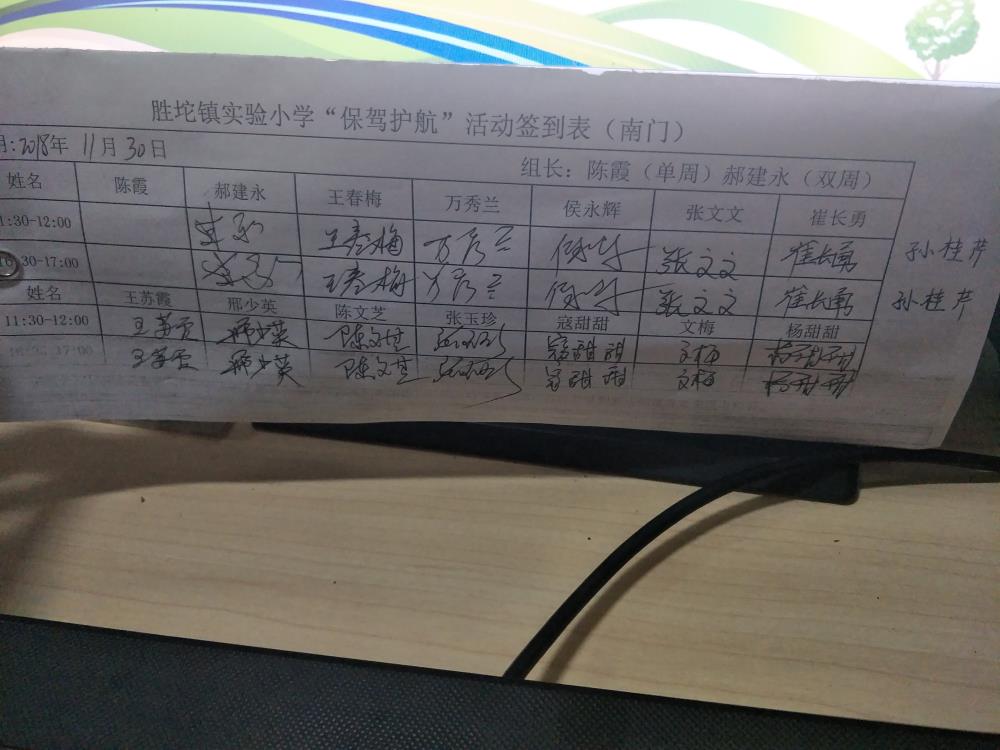 胜坨镇实验小学“保驾护航”活动签到表（南门）
:2018年 11月30日 组长：陈霞（单周）郝建永（双周）
姓名 陈霞 郝建永 王春梅 万秀兰 侯永辉 张文文 崔长勇
1:30-12:00 王春梅 万秀兰 张文文 崔长勇 孙桂芹
16:30-17:00 王春梅 万秀兰 张文文 崔长勇 孙桂芹
姓名 王苏霞 邢少英 陈文芝 张玉珍 寇甜甜 文梅 杨甜甜
11:30-12:00 王苏霞 邢少英 陈文芝 寇甜甜 文梅 杨甜甜
16:30-17:00 王苏霞 邢少英 陈文芝 寇甜甜 文梅 杨甜甜